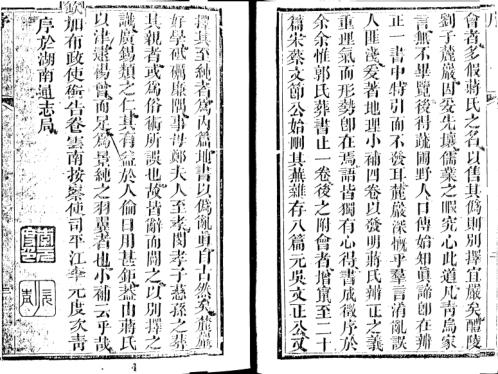 會者多假蔣氏之名以售其僞則別擇宜嚴矣醴陵
劉子麓嚴因爰先壤儒業之暇究心此道凡青烏家
言無不畢覽後得疏圃野人口傳始知眞諦卽在辨
正一書中特引而不發耳麓嚴深慨乎羣言淆亂誤
人匪淺爰著地理小補四卷以發明蔣氏辨正之義
重理氣而形勢卽在焉語皆獨有心得書成徵序於
余余惟郭氏葬書止一卷後之附會者增竄至二十
篇宋蔡文節公始刪其蕪雜存八篇元吳文正公又
擇其至純者爲內篇地書以僞亂眞自古然矣麓嚴
好學砥礪廉隅事母鄭夫人至孝閔孝子慈孫之葬
其親者或爲俗術所誤也故皆辭而闢之以別擇之
識廣錫類之仁其有益於人倫日用甚鉅蓋由蔣氏
以津逮楊曾而足爲景純之羽翼者也小補云乎哉
欽加布政使銜告養雲南按察使司平江李元度次青
序於湖南通志局